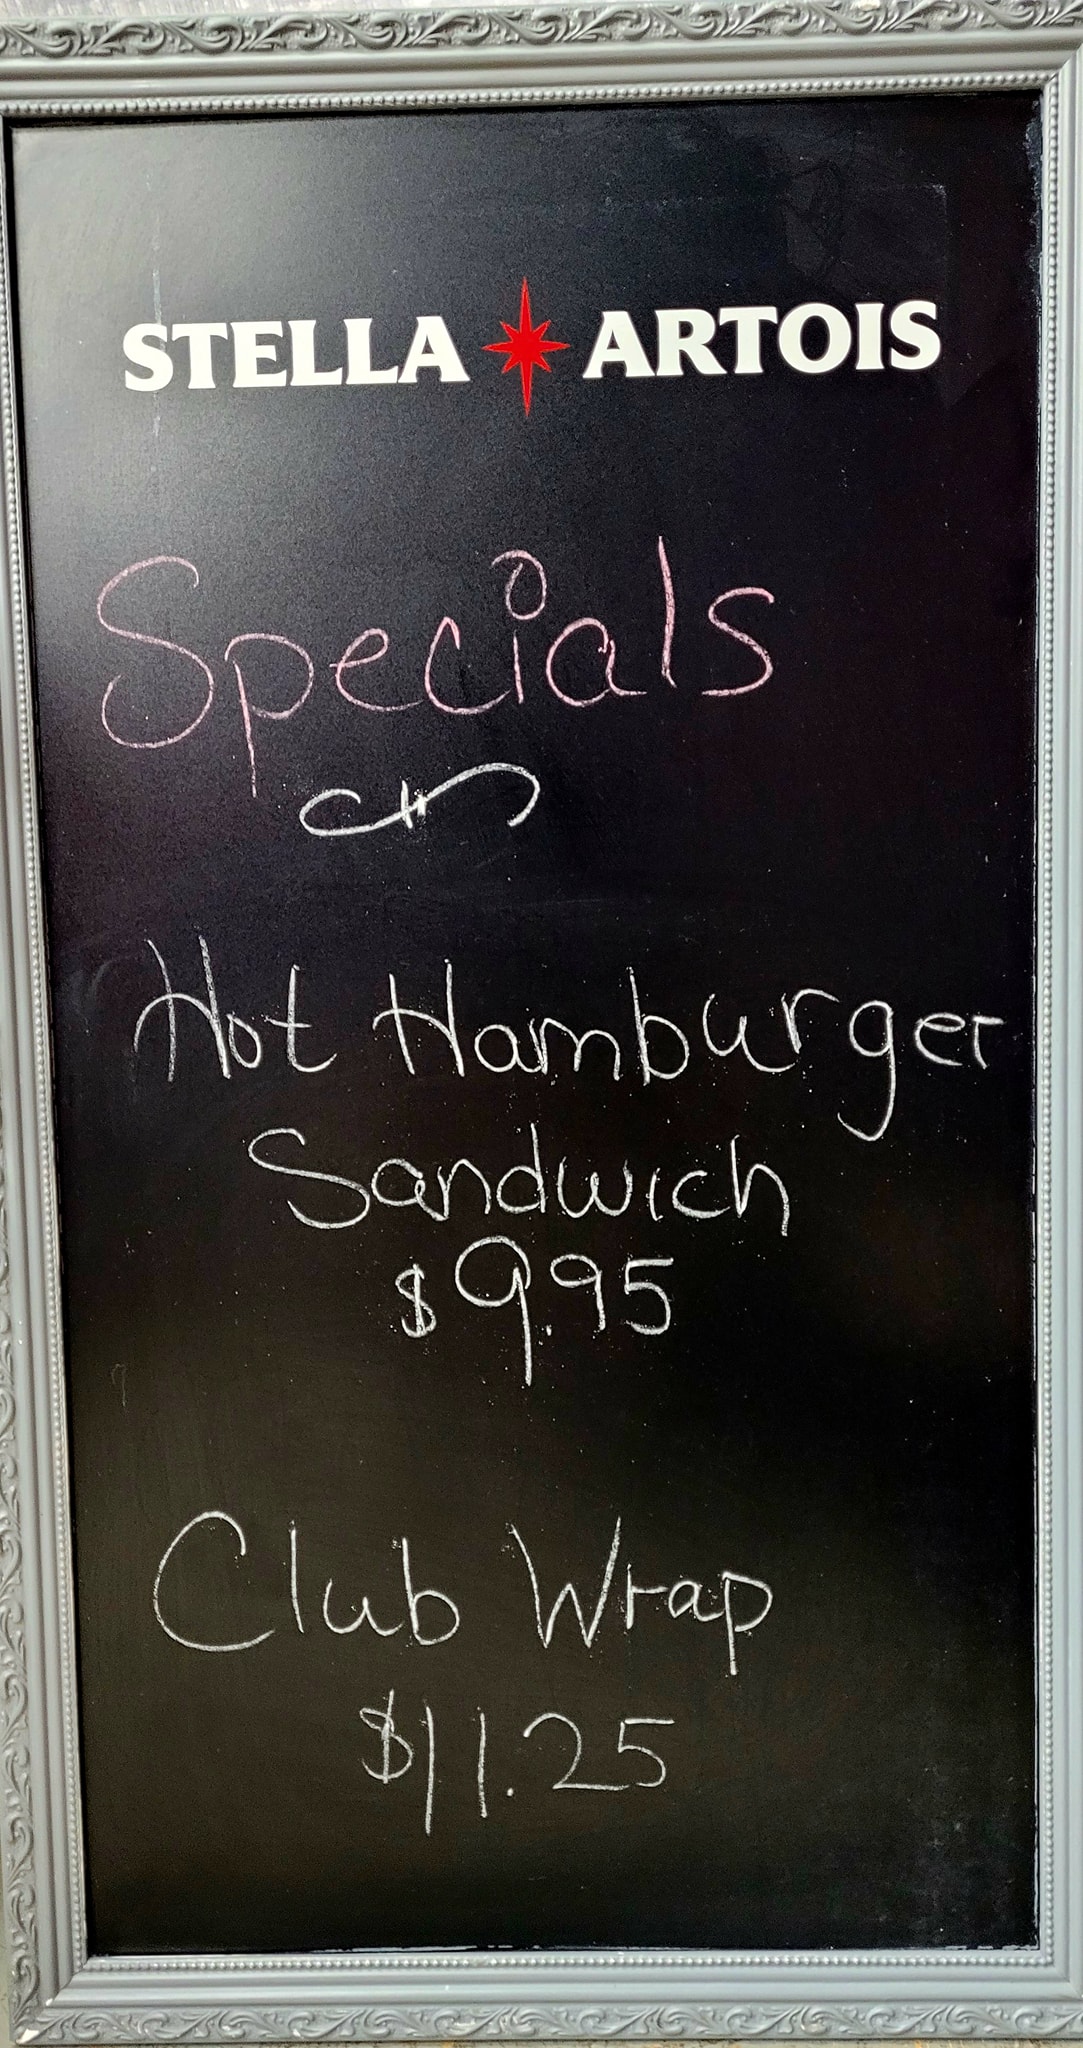 STELLA ARTOIS
Specials
Hot Hamburger
Sandwich
$9.95
Club Wrap
$11.25